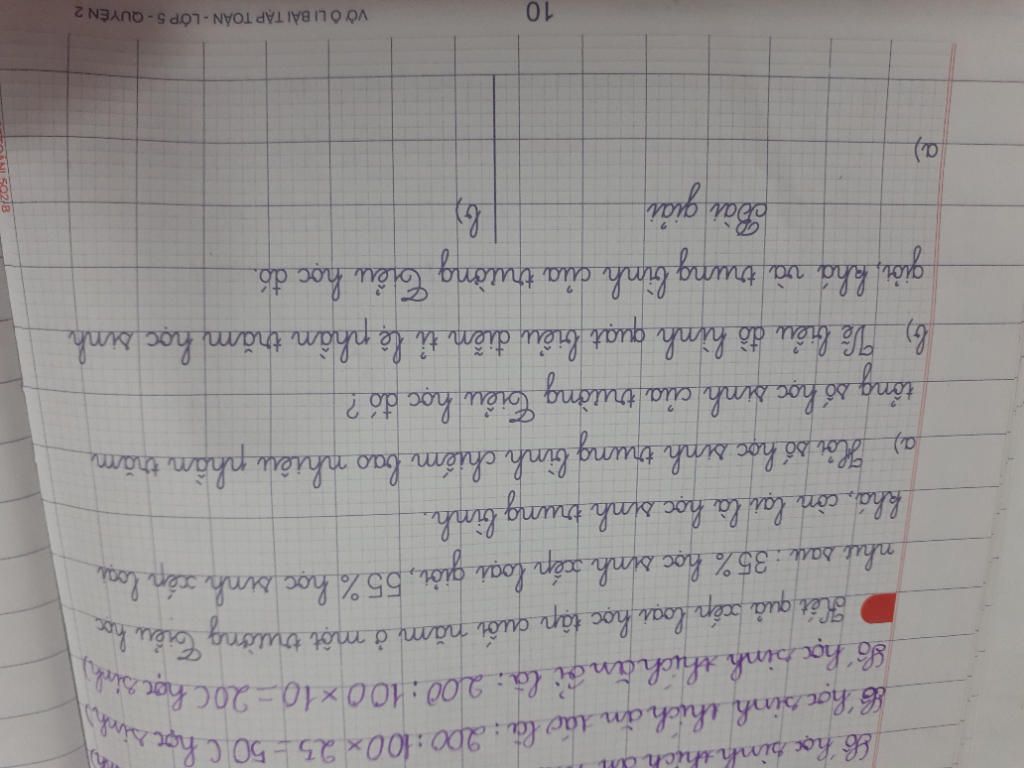 Số học sinh thích ăn
Số học sinh thích ăn táo là : 200 : 100 × 25 = 50 (học sinh)
Số học sinh thích ăn ổi là : 200 : 100 × 10 = 20 (học sinh)
Kết quả xếp loại học tập cuối năm ở một trường Tiểu học
như sau : 35% học sinh xếp loại giỏi, 55% học sinh xếp loại
khá, còn lại là học sinh trung bình.
a) Hỏi số học sinh trung bình chiếm bao nhiêu phần trăm
tổng số học sinh của trường Tiểu học đó ?
b) Vẽ biểu đồ hình quạt biểu diễn tỉ lệ phần trăm học sinh
giỏi, khá và trung bình của trường Tiểu học đó.
Bài giải
a)
b)
10
VỞ Ô LI BÀI TẬP TOÁN - LỚP 5 - QUYỂN 2